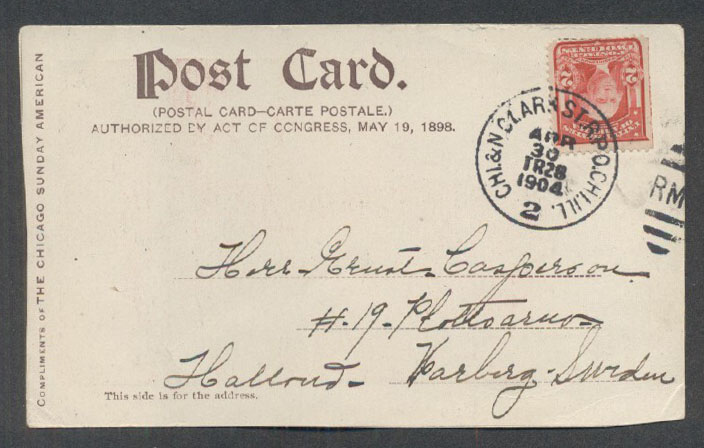 Post Card.
(POSTAL CARD—CARTE POSTALE.)
AUTHORIZED BY ACT OF CONGRESS, MAY 19, 1898.
COMPLIMENTS OF THE CHICAGO SUNDAY AMERICAN
CHI.& N CLARK ST.R.P.O.CHI.ILL.
APR
30
TR28
1904
2
RM
2 2
Herr Ernst Casperson
#-19-Plottsarno-
Hallond- Warberg-Sweden
This side is for the address.